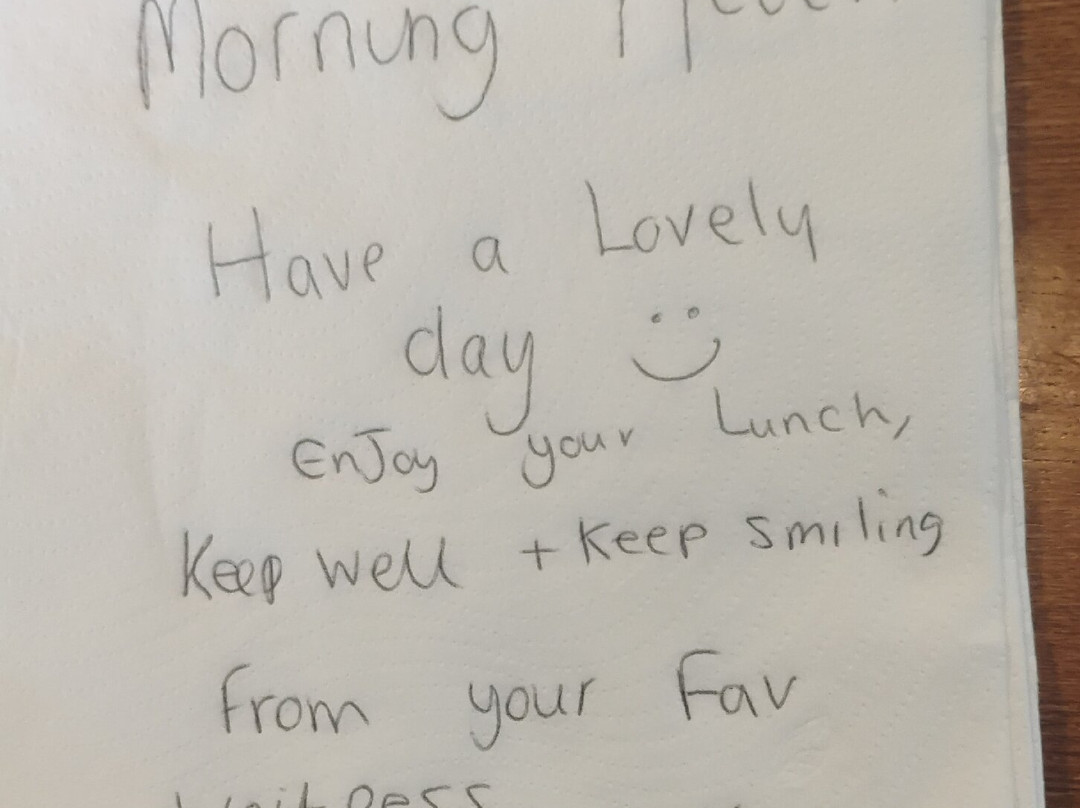 Morning
Have a Lovely
day
EnJoy your Lunch,
Keep well + Keep smiling
From your Fav